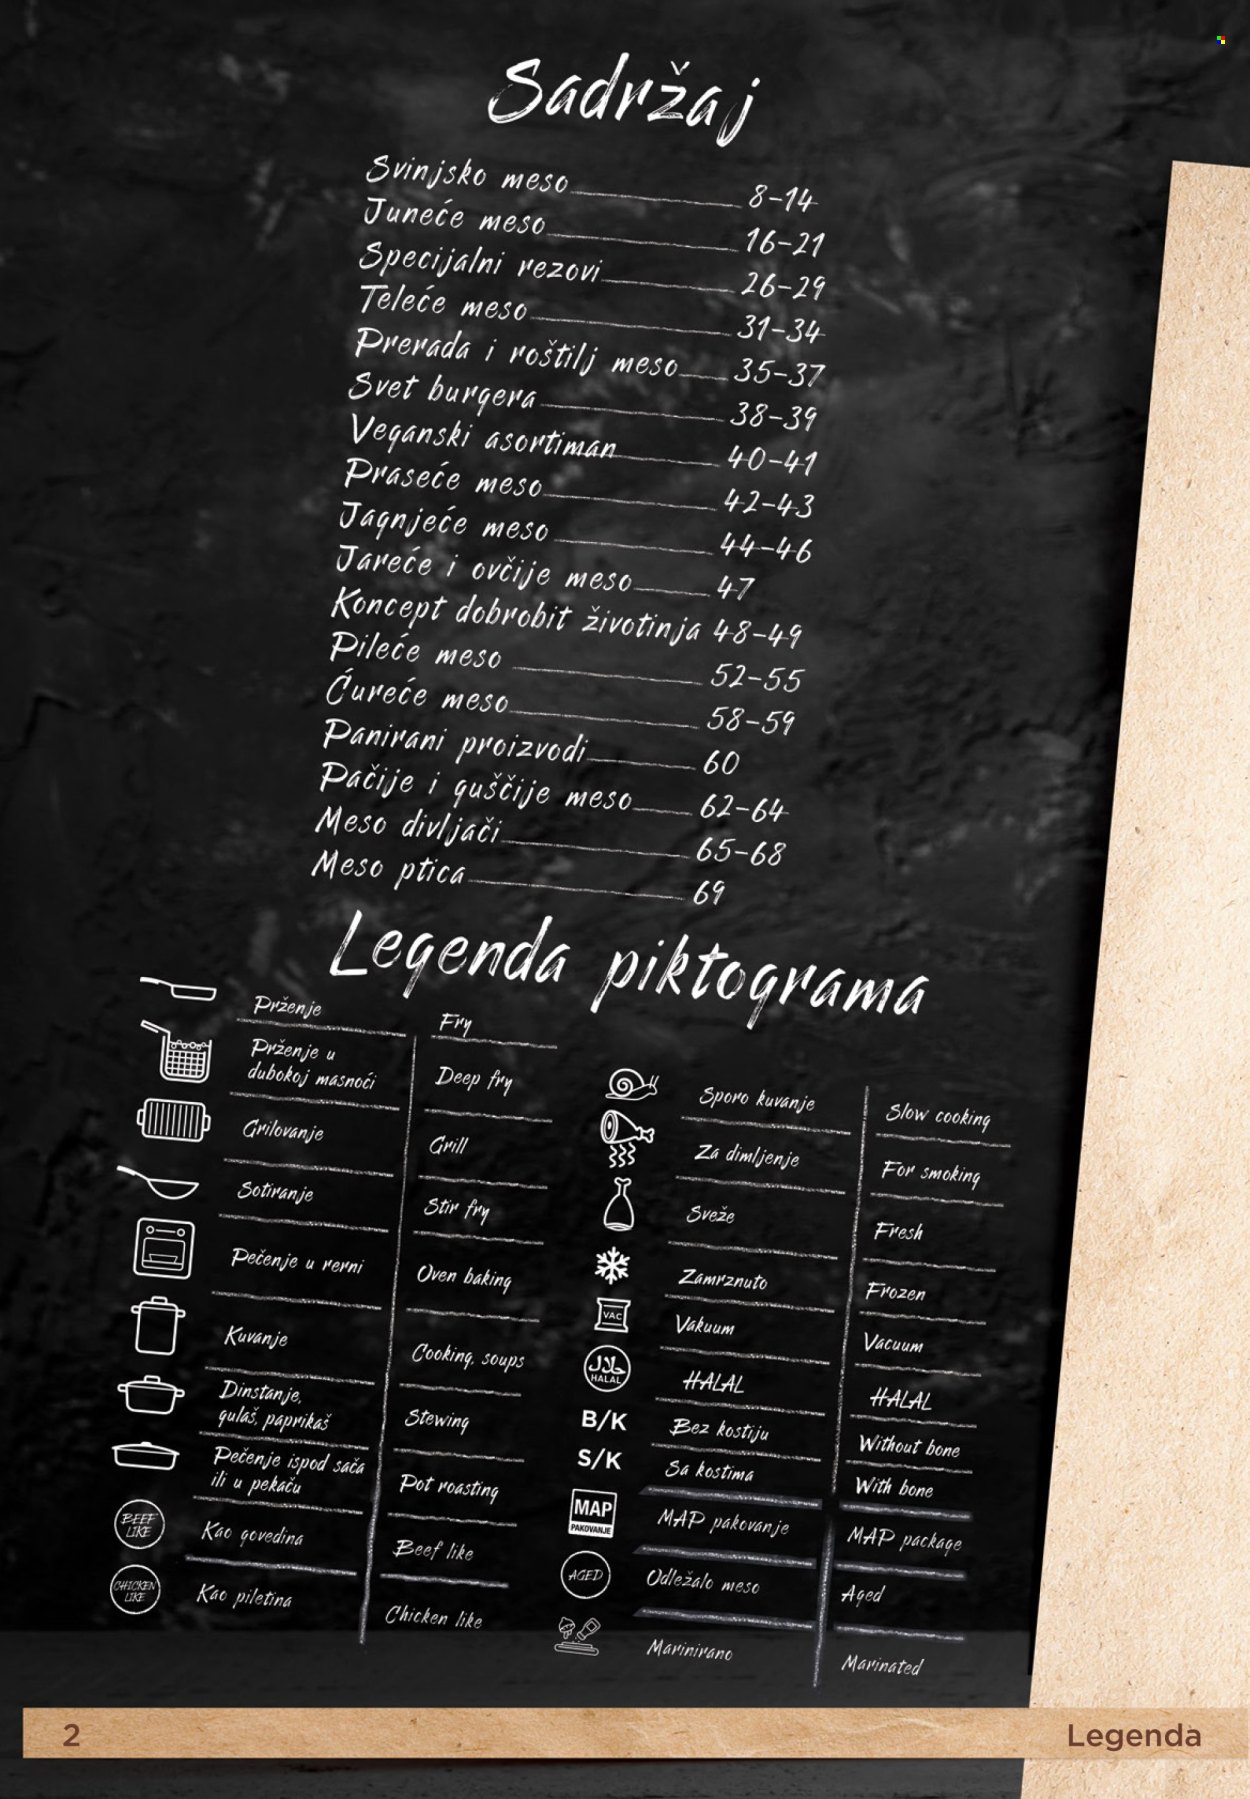 Sadržaj
Svinjsko meso 8-14
Juneće meso 16-21
Specijalni rezovi 26-29
Teleće meso 31-34
Prerada i roštilj meso 35-37
Svet burgera 38-39
Veganski asortiman 40-41
Praseće meso 42-43
Jagnjeće meso 44-46
Jareće i ovčije meso 47
Koncept dobrobit životinja 48-49
Pileće meso 52-55
Ćureće meso 58-59
Panirani proizvodi 60
Pačije i guščije meso 62-64
Meso divljači 65-68
Meso ptica 69
Legenda piktograma
Prženje Fry
Prženje u
dubokoj masnoći Deep fry
Grilovanje Grill
Sotiranje Stir fry
Pečenje u rerni Oven baking
Kuvanje Cooking, soups
Dinstanje,
gulaš, paprikaš Stewing
Pečenje ispod sača
ili u pekaču Pot roasting
BEEF
LIKE Kao govedina Beef like
CHICKEN
LIKE Kao piletina Chicken like
Sporo kuvanje Slow cooking
Za dimljenje For smoking
Sveže Fresh
Zamrznuto Frozen
VAC Vakuum Vacuum
حلال
HALAL HALAL HALAL
B/K Bez kostiju Without bone
S/K Sa kostima With bone
MAP
PAKOVANJE MAP pakovanje MAP package
AGED Odležalo meso Aged
Marinirano Marinated
2 Legenda